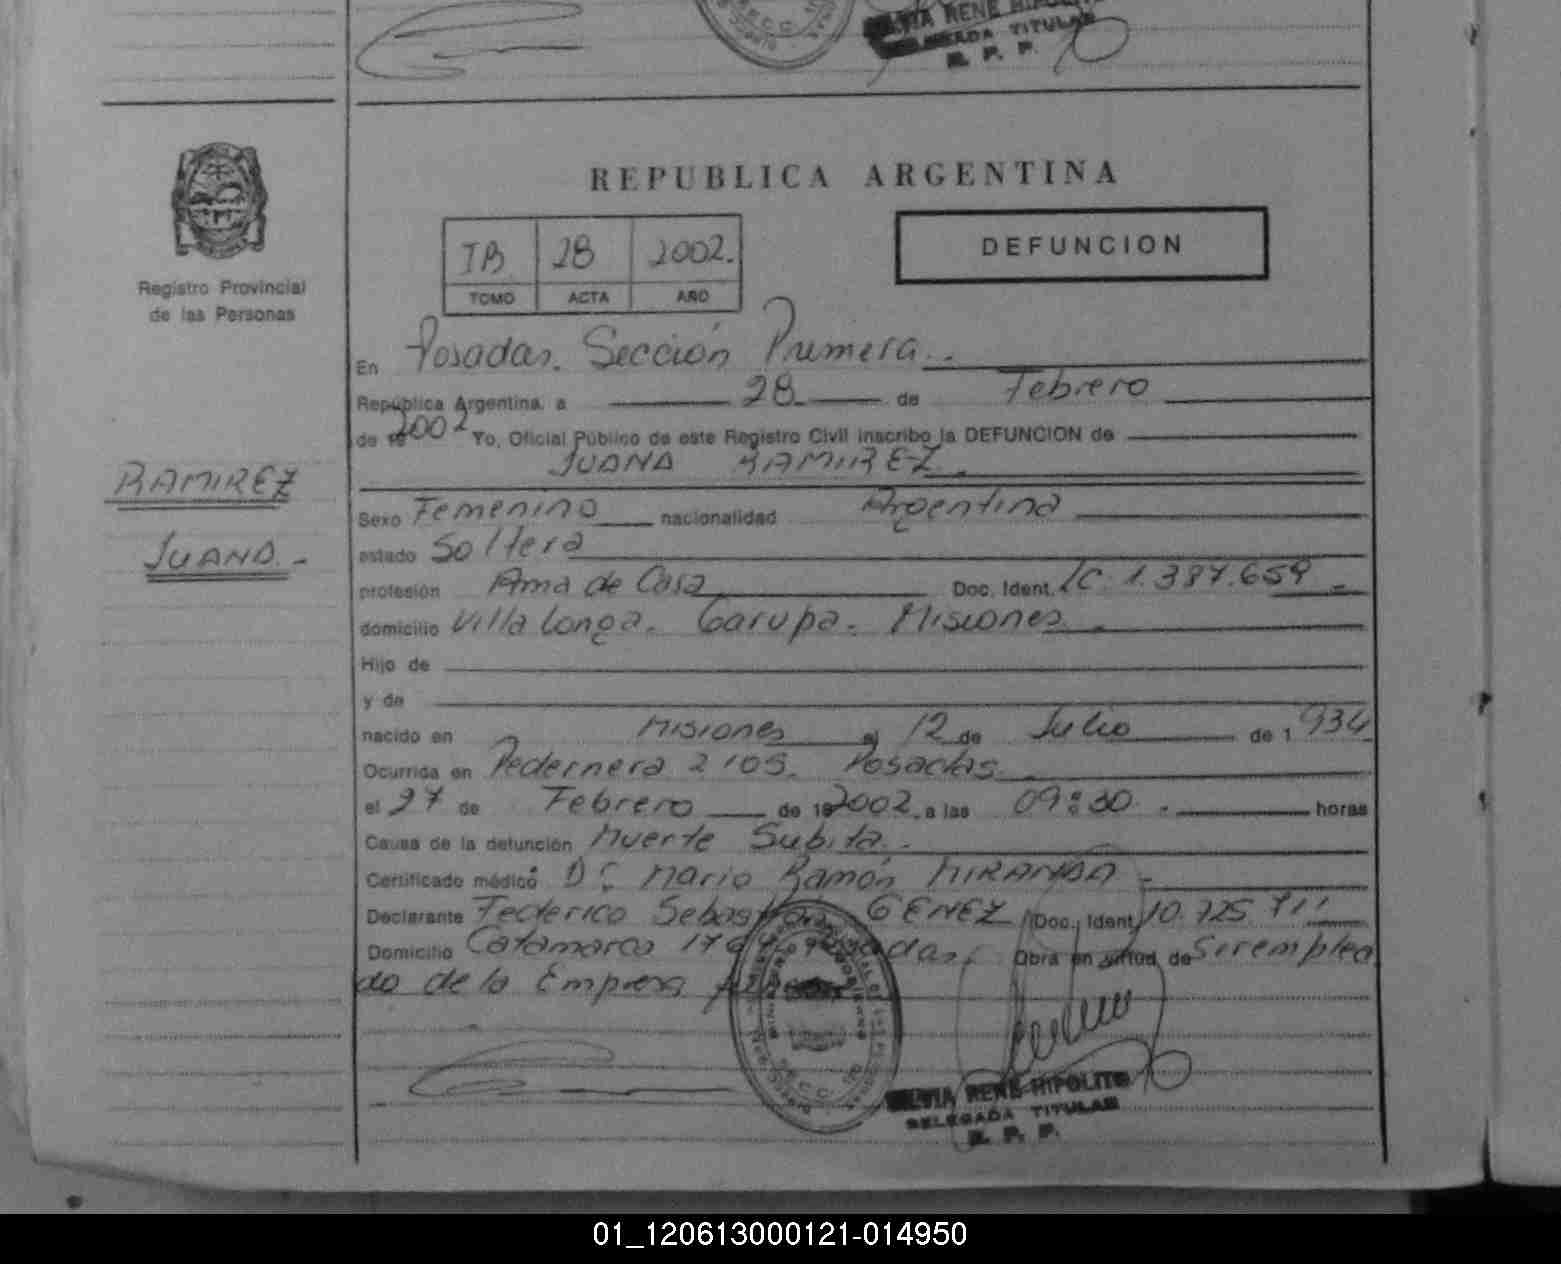 SILVIA RENE HIPOLITO
DELEGADA TITULAR
R. P. P.
REPUBLICA ARGENTINA
DEFUNCION
IB 28 2002.
TOMO ACTA AÑO
Registro Provincial
de las Personas
En Posadas. Sección Primera.
República Argentina, a 28 de Febrero
de 19 2002 Yo, Oficial Público de este Registro Civil inscribo la DEFUNCION de
JUANA RAMIREZ.
RAMIREZ
JUANA.-
Sexo Femenino nacionalidad Argentina
estado Soltera
profesión Ama de Casa Doc. Ident. LC. 1.387.659
domicilio Villa Longa. Garupa. Misiones.
Hijo de
y de
nacido en Misiones el 12 de Julio de 1 934
Ocurrida en Pedernera 2105. Posadas.
el 27 de Febrero de 19 2002. a las 09:30. horas
Causa de la defunción Muerte Subita.
Certificado médico Dr. Mario Ramón MIRANDA -
Declarante Federico Sebastian GENEZ Doc. Ident. 10.725.711
Domicilio Catamarca Posadas. Obra en virtud de Sir emplea
do de la Empresa
SILVIA RENE HIPOLITO
DELEGADA TITULAR
R. P. P.
01_120613000121-014950